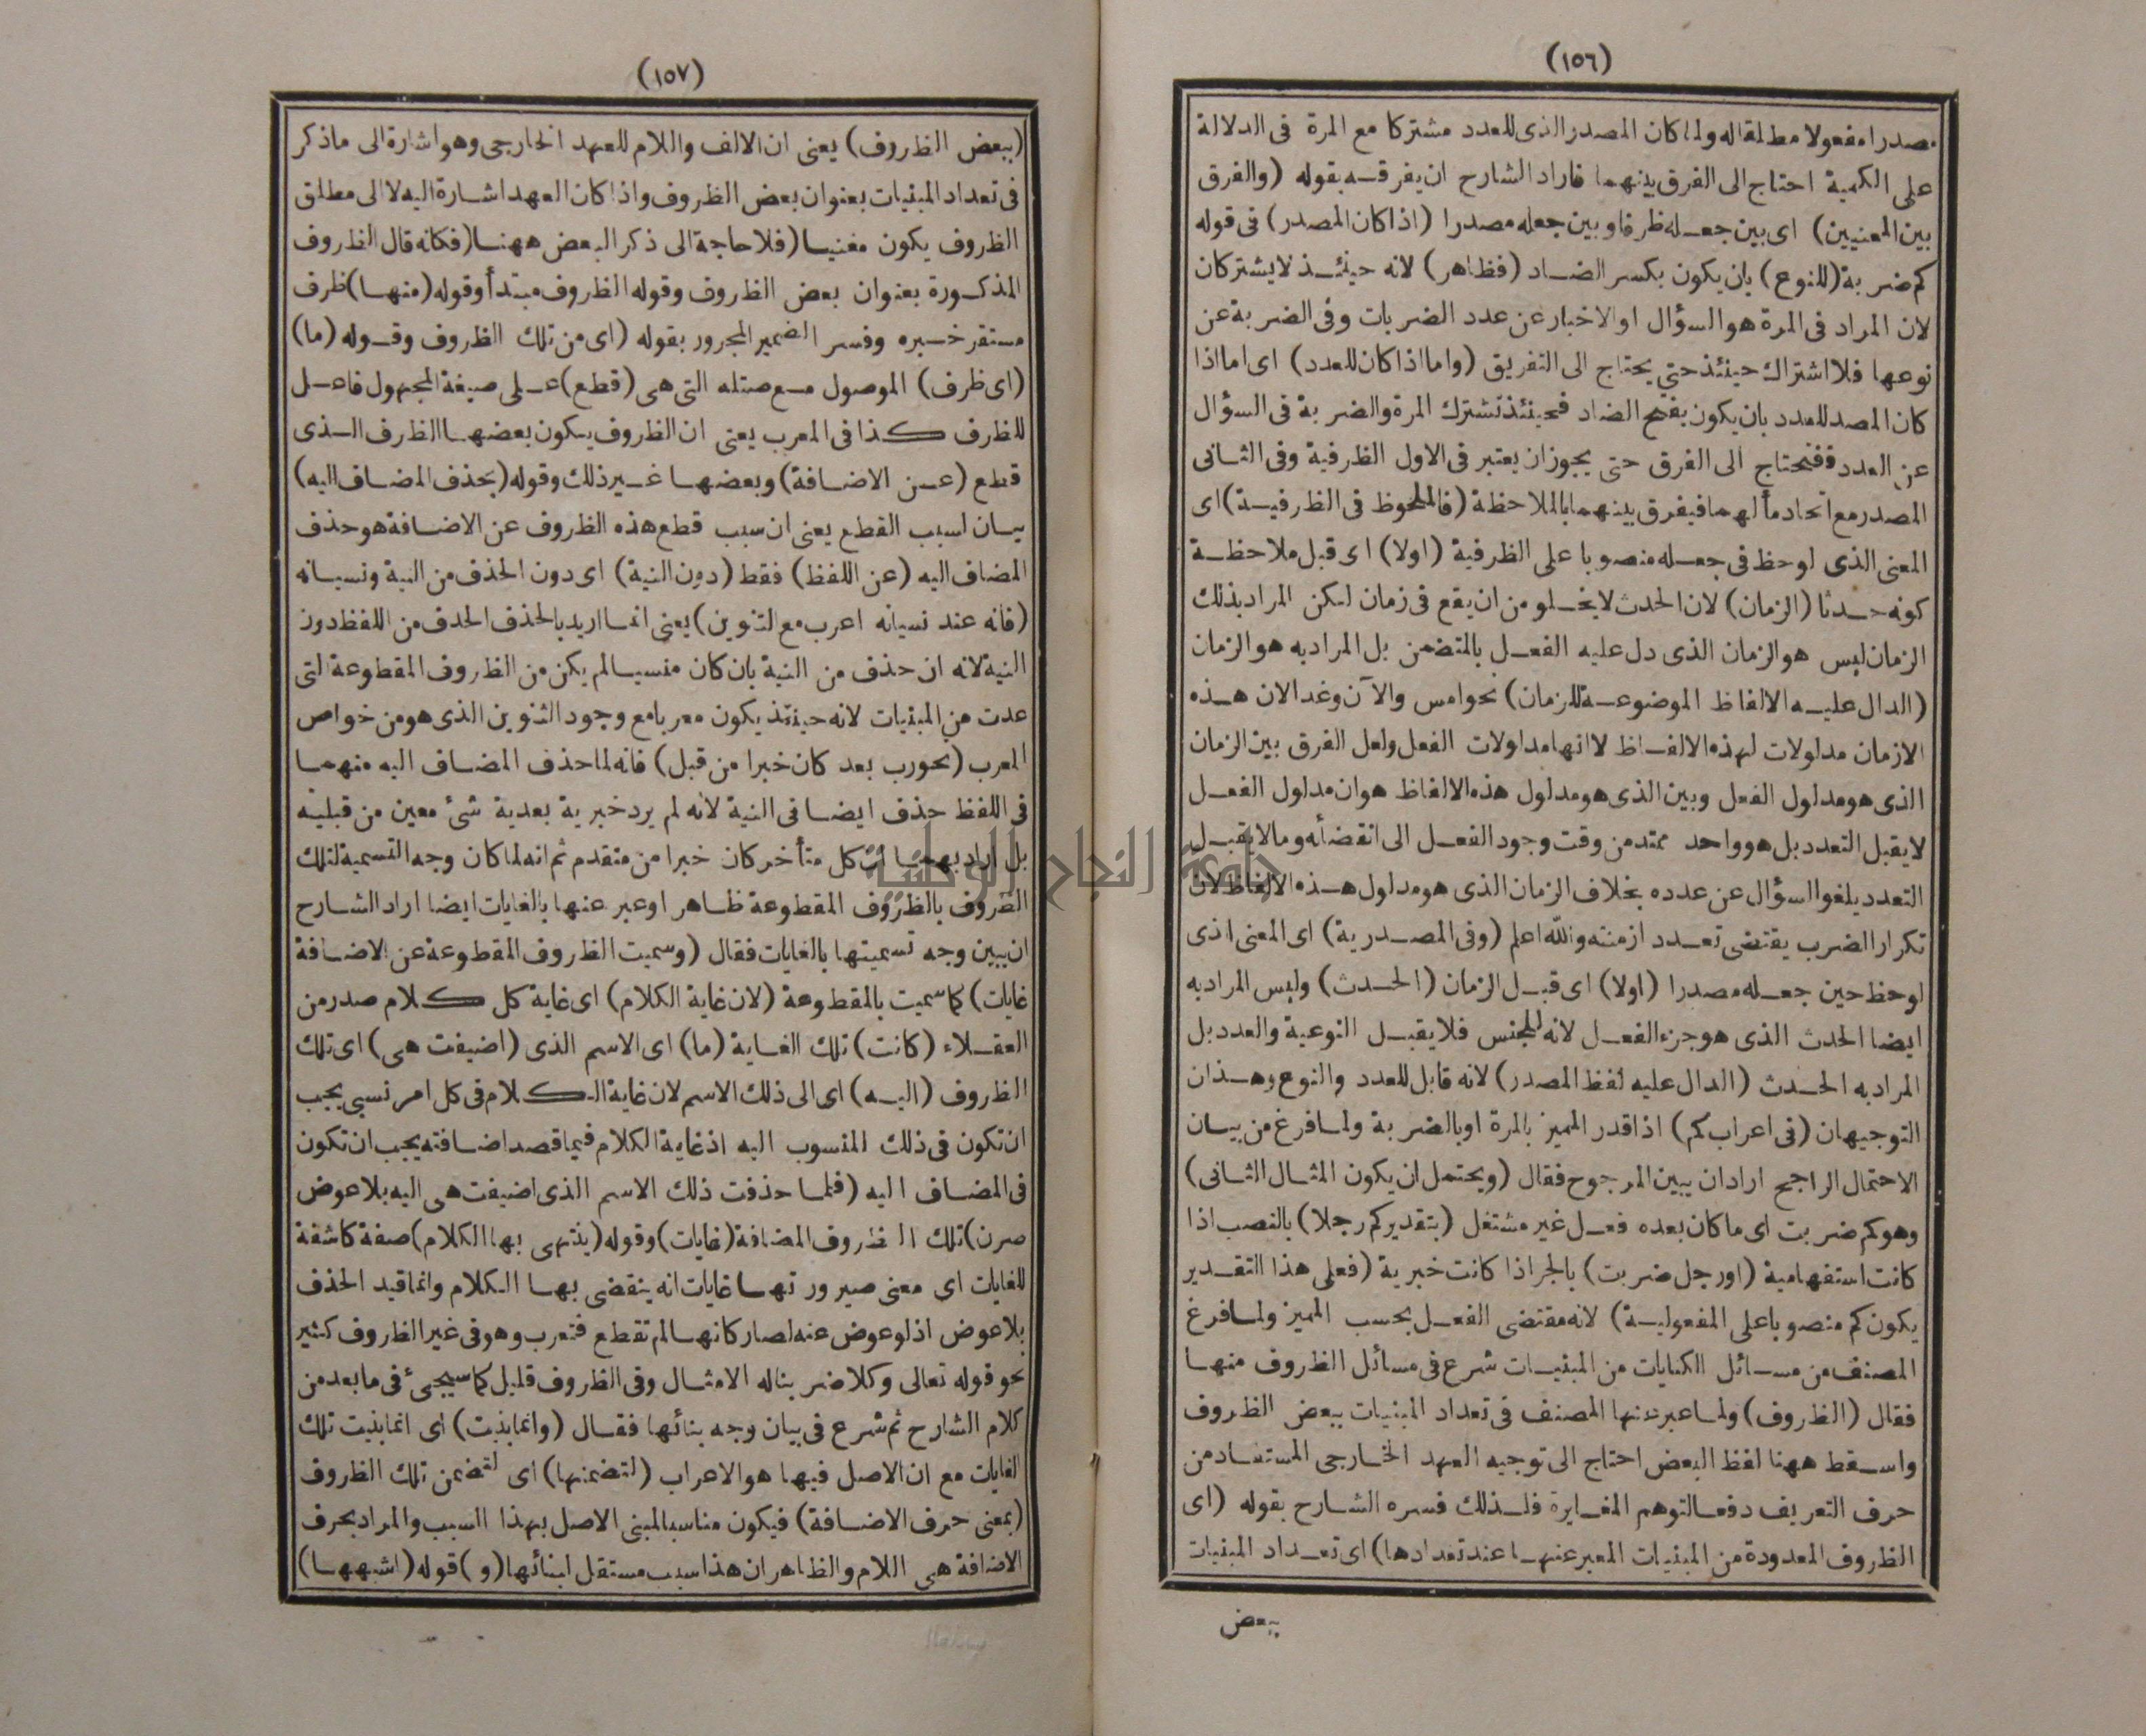 (١٥٦)
مصدرا مفعولا مطلقا له ولما كان المصدر الذى للعدد مشتركا مع المرة فى الدلالة
على الكمية احتاج الى الفرق بينهما فاراد الشارح ان يفرقه بقوله (والفرق
بين المعنيين) اى بين جعله ظرفا وبين جعله مصدرا (اذا كان المصدر) فى قوله
كم ضربة (للنوع) بان يكون بكسر الضاد (فظاهر) لانه حينئذ لا يشتركان
لان المراد فى المرة هو السؤال او الاخبار عن عدد الضربات وفى الضربة عن
نوعها فلا اشتراك حينئذ حتى يحتاج الى التفريق (واما اذا كان للعدد) اى اما اذا
كان المصدر للعدد بان يكون بفتح الضاد فحينئذ تشترك المرة والضربة فى السؤال
عن العدد فنحتاج الى الفرق حتى يجوز ان يعتبر فى الاول الظرفية وفى الثانى
المصدر مع اتحاد مآلهما فيفرق بينهما بالملاحظة (فالملحوظ فى الظرفية) اى
المعنى الذى لوحظ فى جعله منصوبا على الظرفية (اولا) اى قبل ملاحظة
كونه حدثا (الزمان) لان الحدث لا يخلو من ان يقع فى زمان لكن المراد بذلك
الزمان ليس هو الزمان الذى دل عليه الفعل بالتضمن بل المراد به هو الزمان
(الدال عليه الالفاظ الموضوعة للزمان) نحو امس والآن وغدا لان هذه
الازمان مدلولات لهذه الالفاظ لا انها مدلولات الفعل ولعل الفرق بين الزمان
الذى هو مدلول الفعل وبين الذى هو مدلول هذه الالفاظ هو ان مدلول الفعل
لا يقبل التعدد بل هو واحد ممتد من وقت وجود الفعل الى انقضائه وما لا يقبل
التعدد يلغو السؤال عن عدده بخلاف الزمان الذى هو مدلول هذه الالفاظ لان
تكرار الضرب يقتضى تعدد ازمنته والله اعلم (وفى المصدرية) اى المعنى الذى
لوحظ حين جعله مصدرا (اولا) اى قبل الزمان (الحدث) وليس المراد به
ايضا الحدث الذى هو جزء الفعل لانه للجنس فلا يقبل النوعية والعدد بل
المراد به الحدث (الدال عليه لفظ المصدر) لانه قابل للعدد والنوع وهذان
التوجيهان (فى اعراب كم) اذا قدر المميز بالمرة او بالضربة ولما فرغ من بيان
الاحتمال الراجح اراد ان يبين المرجوح فقال (ويحتمل ان يكون المثال الثانى)
وهو كم ضربت اى ما كان بعده فعل غير مشتغل (بتقدير كم رجلا) بالنصب اذا
كانت استفهامية (او رجل ضربت) بالجر اذا كانت خبرية (فعلى هذا التقدير
يكون كم منصوبا على المفعولية) لانه مقتضى الفعل بحسب المميز ولما فرغ
المصنف من مسائل الكنايات من المبنيات شرع فى مسائل الظروف منها
فقال (الظروف) ولما عبر عنها المصنف فى تعداد المبنيات ببعض الظروف
واسقط ههنا لفظ البعض احتاج الى توجيه العهد الخارجى المستفاد من
حرف التعريف دفعا لتوهم المغايرة فلذلك فسره الشارح بقوله (اى
الظروف المعدودة من المبنيات المعبر عنها عند تعدادها) اى تعداد المبنيات
ببعض
(١٥٧)
(ببعض الظروف) يعنى ان الالف واللام للعهد الخارجى وهو اشارة الى ما ذكر
فى تعداد المبنيات بعنوان بعض الظروف واذا كان العهد اشارة اليه لا الى مطلق
الظروف يكون مغنيا (فلا حاجة الى ذكر البعض ههنا) فكانه قال الظروف
المذكورة بعنوان بعض الظروف وقوله الظروف مبتدأ وقوله (منها) ظرف
مستقر خبره وفسر الضمير المجرور بقوله (اى من تلك الظروف وقوله (ما)
(اى ظرف) الموصول مع صلته التى هى (قطع) على صيغة المجهول فاعل
للظرف كذا فى المعرب يعنى ان الظروف يكون بعضها الظرف الذى
قطع (عن الاضافة) وبعضها غير ذلك وقوله (بحذف المضاف اليه)
بيان لسبب القطع يعنى ان سبب قطع هذه الظروف عن الاضافة هو حذف
المضاف اليه (عن اللفظ) فقط (دون النية) اى دون الحذف من النية ونسيانه
(فانه عند نسيانه اعرب مع التنوين) يعنى انما اريد بالحذف الحذف من اللفظ دون
النية لانه ان حذف من النية بان كان منسيا لم يكن من الظروف المقطوعة التى
عدت من المبنيات لانه حينئذ يكون معربا مع وجود التنوين الذى هو من خواص
المعرب (نحو رب بعد كان خبرا من قبل) فانه لما حذف المضاف اليه منهما
فى اللفظ حذف ايضا فى النية لانه لم يرد خبرية بعدية شئ معين من قبليه
بل اراد بهما ان كل متأخر كان خبرا من متقدم ثم انه لما كان وجه التسمية لتلك
الظروف بالظروف المقطوعة ظاهر او عبر عنها بالغايات ايضا اراد الشارح
ان يبين وجه تسميتها بالغايات فقال (وسميت الظروف المقطوعة عن الاضافة
غايات) كما سميت بالمقطوعة (لان غاية الكلام) اى غاية كل كلام صدر من
العقلاء (كانت) تلك الغاية (ما) اى الاسم الذى (اضيفت هى) اى تلك
الظروف (اليه) اى الى ذلك الاسم لان غاية الكلام فى كل امر نسبى يجب
ان تكون فى ذلك المنسوب اليه اذ غاية الكلام فيما قصد اضافته يجب ان تكون
فى المضاف اليه (فلما حذفت ذلك الاسم الذى اضيفت هى اليه بلا عوض
صرن) تلك الظروف المضافة (غايات) وقوله (ينتهى بها الكلام) صفة كاشفة
للغايات اى معنى صيرورتها غايات انه ينقضى بها الكلام وانما قيد الحذف
بلا عوض اذ لو عوض عنه لصار كانها لم تقطع فتعرب وهو فى غير الظروف كثير
نحو قوله تعالى وكلا ضربنا له الامثال وفى الظروف قليل كما سيجئ فى ما بعد من
كلام الشارح ثم شرع فى بيان وجه بنائها فقال (وانما بنيت) اى انما بنيت تلك
الغايات مع ان الاصل فيها هو الاعراب (لتضمنها) اى لتضمن تلك الظروف
(بمعنى حرف الاضافة) فيكون مناسبا لمبنى الاصل بهذا السبب والمراد بحرف
الاضافة هى اللام والظاهر ان هذا سبب مستقل لبنائها (و) قوله (اشبهها)
جامعة النجاح الوطنية